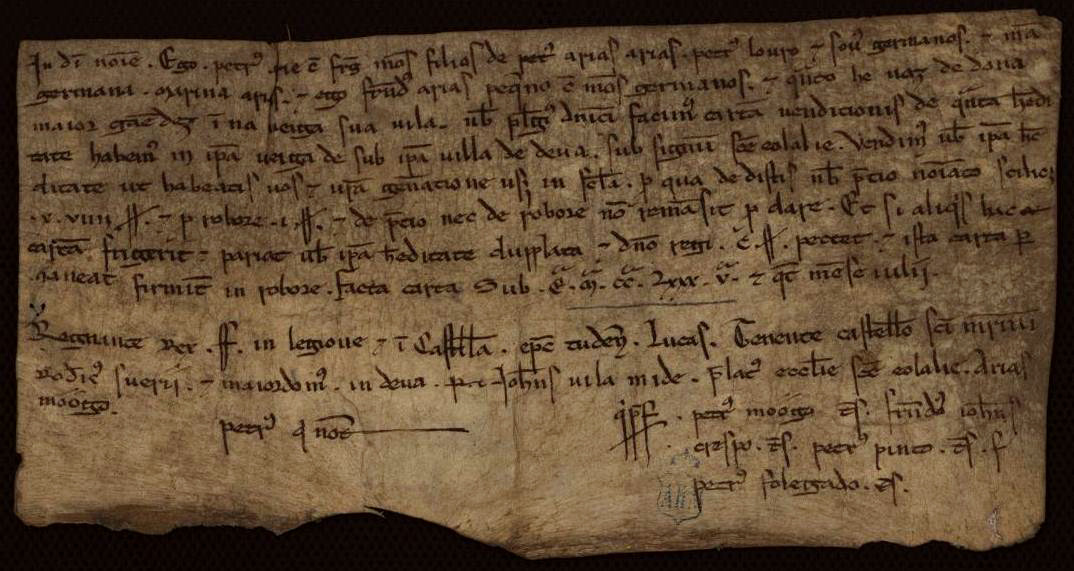 In dī noīe. Ego. petrꝰ pie ⁊ frꝫ mōs filios de petͥ arias arias. petrꝰ louro ⁊ souͥ germanos. ⁊ mīa
germana. marina arias. ⁊ ego frñd arias peq̄no ⁊ mōs germanos. ⁊ de dona
maior ī na ueiga sua uila. ub facimꝰ cartā uendicionis de q̄nta hēdi
tate habemꝰ in ipā ueiga de sub ipā uilla de deua. sub signū sc̄e eolalie. Vendimꝰ ub ipā hē
ditate ut habeatis uōs ⁊ ur̄a genatione usꝫ in sc̄la. p qua dedistis ub p̄cio noīato scilicꝫ
.x. uiiii ſſ. ⁊ p robore .i. ſſ. ⁊ de p̄cio nec de robore nō remāsit p dare. Et si aliqis hac
cartā frigerit pariat ub ipā hēditate dupplata ⁊ dn̄o regi .c. ſſ. pectet. ⁊ ista carta p
maneat firmit̄ in robore. facta carta Sub .E. M. CC. Lxxx. v. ⁊ qt̄ mēse iulii.
Regnante rex .ff. in legione ⁊ ī Castella. epc̄ tudēn. Lucas. Tenente castello sc̄i mr̄tini
rodͥcꝰ suerii. ⁊ maiordomꝰ. in deua. Ioh̄ns uila mide. p̄latꝰ ecclie sc̄e eolalie. Arias
moogo.
petrꝰ q not̄
q̄ pſ. petrꝰ moogo ts̄. fr̄ndͦ ioh̄ns
crespo. ts̄. petrꝰ pinto. ts̄. f
petrꝰ folegado. ts̄.